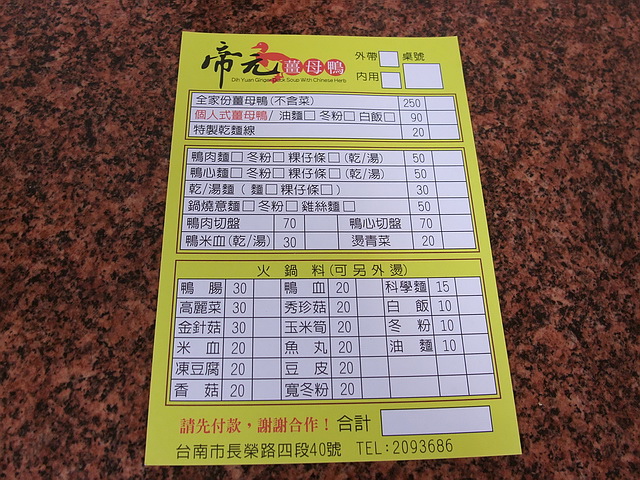 帝元薑母鴨
Dih Yuan Ginger Duck Soup With Chinese Herb
外帶□ 桌號
內用□
全家份薑母鴨(不含菜) 250
個人式薑母鴨/油麵□冬粉□白飯□ 90
特製乾麵線 20
鴨肉麵□冬粉□粿仔條□(乾/湯) 50
鴨心麵□冬粉□粿仔條□(乾/湯) 50
乾/湯麵(麵□粿仔條□) 30
鍋燒意麵□冬粉□雞絲麵□ 50
鴨肉切盤 70 鴨心切盤 70
鴨米血(乾/湯) 30 燙青菜 20
火鍋料(可另外燙)
鴨腸 30 鴨血 20 科學麵 15
高麗菜 30 秀珍菇 20 白飯 10
金針菇 30 玉米筍 20 冬粉 10
米血 20 魚丸 20 油麵 10
凍豆腐 20 豆皮 20
香菇 20 寬冬粉 20
請先付款，謝謝合作！合計
台南市長榮路四段40號 TEL:2093686